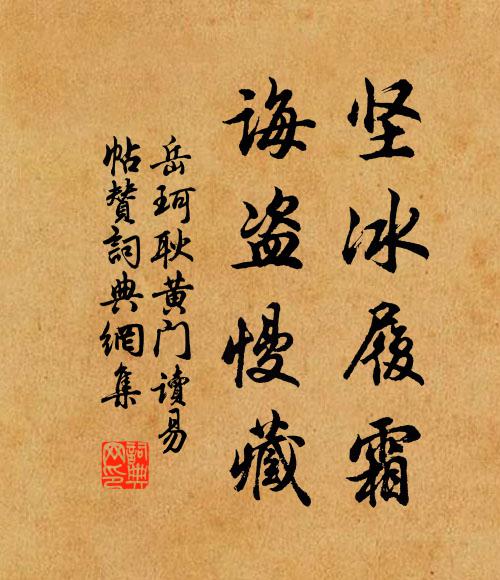 坚冰履霜
诲盗慢藏
岳珂耿黄门读易
帖赞词典網集
詞典网印